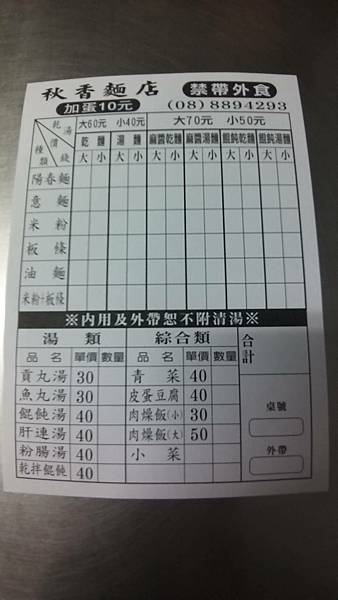 秋香麵店 禁帶外食
加蛋10元 (08)8894293
乾湯 大60元 小40元 大70元 小50元
價錢 乾麵 湯麵 麻醬乾麵 麻醬湯麵 餛飩乾麵 餛飩湯麵
種類 大 小 大 小 大 小 大 小 大 小 大 小
陽春麵
意麵
米粉
板條
油麵
米粉+板條
※內用及外帶恕不附清湯※
湯類 綜合類 合計
品名 單價 數量 品名 單價 數量
貢丸湯 30 青菜 40
魚丸湯 30 皮蛋豆腐 40
餛飩湯 40 肉燥飯(小) 30 桌號
肝連湯 40 肉燥飯(大) 50
粉腸湯 40 小菜 外帶
乾拌餛飩 40